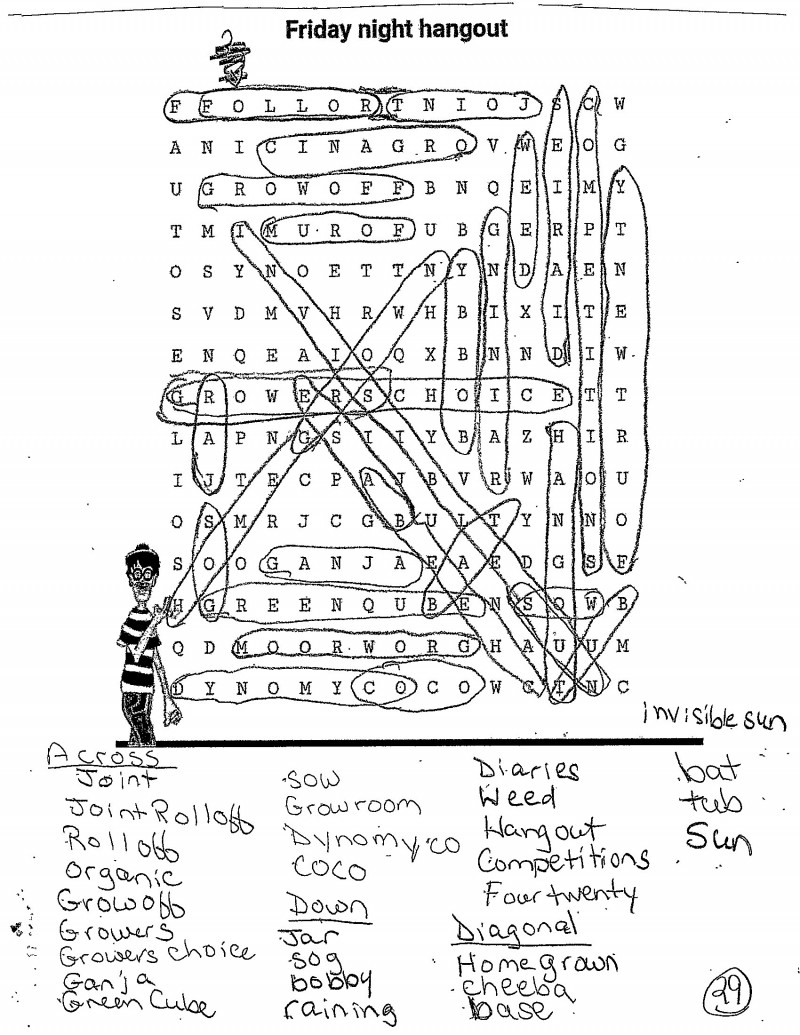 Friday night hangout
F F O L L O R T N I O J S C W
A N I C I N A G R O V W E O G
U G R O W O F F B N Q E I M Y
T M I M U R O F U B G E R P T
O S Y N O E T T N Y N D A E N
S V D M V H R W H B I X I T E
E N Q E A I O Q X B N N D I W
G R O W E R S C H O I C E T T
L A P N G S I I Y B A Z H I R
I J T E C P A J B V R W A O U
O S M R J C G B U L T Y N N O
S O O G A N J A E A E D G S F
H G R E E N Q U B E N S O W B
Q D M O O R W O R G H A U U M
D Y N O M Y C O C O W C T N C
invisible sun
Across
Joint
Joint Rolloff
Rolloff
organic
Growoff
Growers
Growers choice
Ganja
Green Cube
sow
Growroom
Dynomyco
COCO
Down
Jar
sog
bobby
raining
Diaries
Weed
Hangout
Competitions
Fourtwenty
Diagonal
Homegrown
cheeba
base
bat
tub
Sun
29